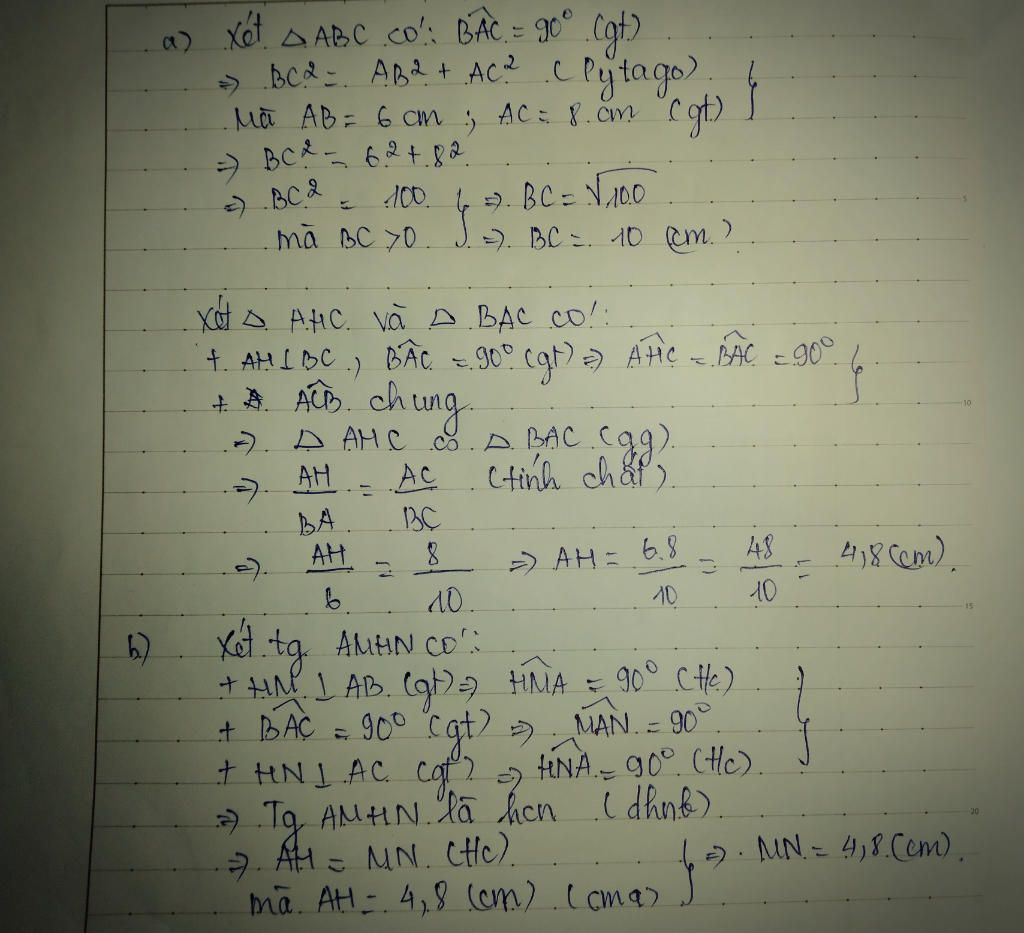 a) Xét △ ABC có: BÂC = 90° (gt)
⇒ BC² = AB² + AC² (Pytago)
Mà AB = 6 cm ; AC = 8 cm (gt)
⇒ BC² = 6² + 8²
⇒ BC² = 100 ⇒ BC = √100
mà BC > 0 ⇒ BC = 10 (cm)
Xét △ AHC và △ BAC có:
+ AH ⊥ BC, BÂC = 90° (gt) ⇒ AĤC = BÂC = 90°
+ AĈB chung
⇒ △ AHC ∽ △ BAC (gg)
⇒ AH/BA = AC/BC (tính chất)
⇒ AH/6 = 8/10 ⇒ AH = 6.8/10 = 48/10 = 4,8 (cm).
b) Xét tg AMHN có:
+ HM ⊥ AB (gt) ⇒ HM̂A = 90° (t/c)
+ BÂC = 90° (gt) ⇒ MÂN = 90°
+ HN ⊥ AC (gt) ⇒ HN̂A = 90° (t/c)
⇒ Tg AMHN là hcn (dhnb)
⇒ AH = MN (t/c) ⇒ MN = 4,8 (cm).
mà AH = 4,8 (cm) (cma)
5
10
15
20